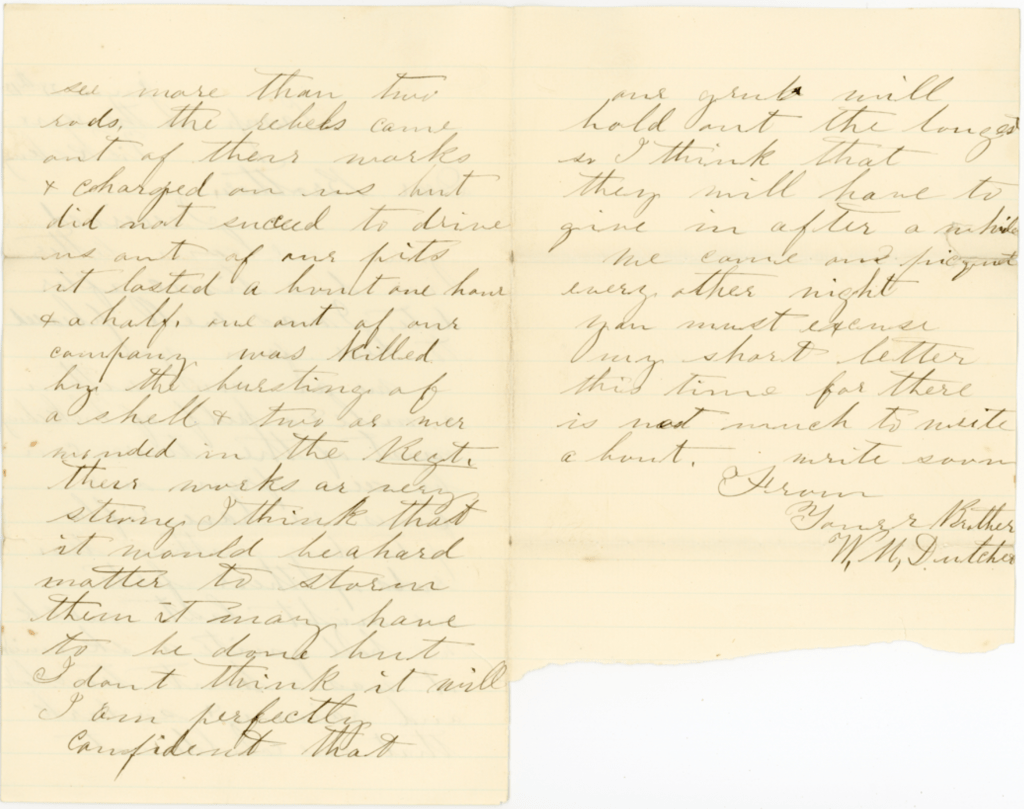 see more than two
rods, the rebels came
out of theis works
& charged on us but
did not succeed to drive
us out of our pits
it lasted a bout one hour
& a half. one out of our
company was killed
by the bursting of
a shell & two or mer
wonded in the Regt.
theis works ar very
strong I think that
it would be a hard
matter to storm
them it may have
to be done but
I dont think it will
I am perfectly
confident that
our grub will
hold out the longest
so I think that
they will have to
give in after a while
We come on picquet
every other night
you must excuse
my short letter
this time for there
is not much to write
a bout. write soon
From
Your Brother
W, M, Dutcher